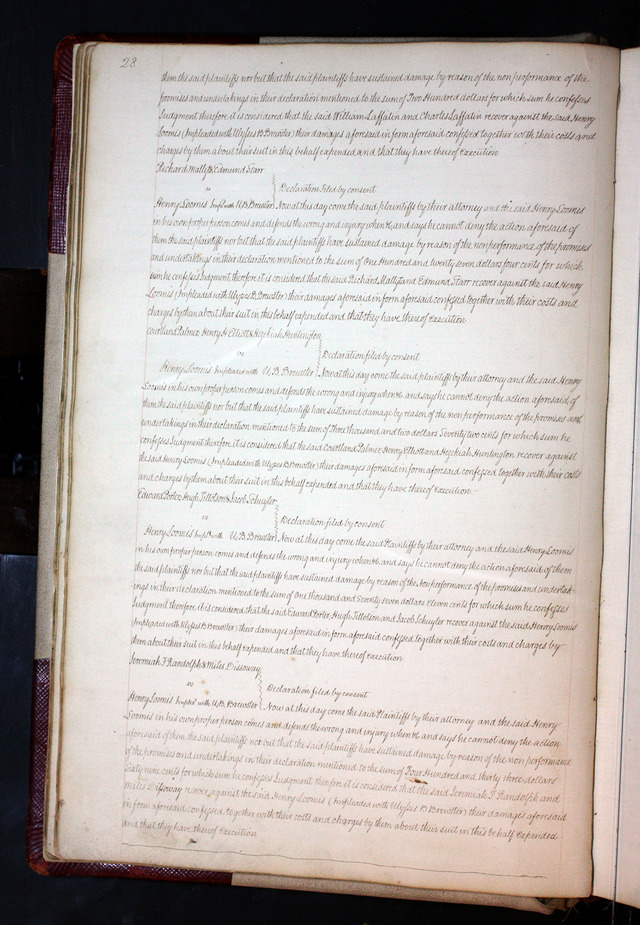 28
them the said plaintiffs nor but that the said plaintiffs have sustained damage by reason of the non performance of the
promises and undertakings in their declaration mentioned to the sum of Two Hundred dollars for which sum he confesses
Judgment therefore it is considered that the said William Laffalin and Charles Laffalin recover against the said Henry
Loomis (Impleaded with Ulysses B. Brewster) their damages aforesaid in form aforesaid confessed together with their costs and
charges by them about their suit in this behalf expended and that they have thereof execution
Richard Mally & Edmund Starr
vs
Declaration filed by consent
Henry Loomis Impd with U.B. Brewster Now at this day come the said plaintiffs by their attorney and the said Henry Loomis
in his own proper person comes and defends the wrong and injury when &c and says he cannot deny the action aforesaid of
them the said plaintiffs nor but that the said plaintiffs have sustained damage by reason of the nonperformance of the promises
and undertakings in their declaration mentioned to the sum of One Hundred and twenty seven dollars four cents for which
sum he confesses Judgment therefore it is considered that the said Richard Mally and Edmund Starr recover against the said Henry
Loomis (Impleaded with Ulysses B. Brewster) their damages aforesaid in form aforesaid confessed together with their costs and
charges by them about their suit in this behalf expended and that they have thereof execution
Courtland Palmer Henry H. Elliott & Hezekiah Huntington
vs
Declaration filed by consent
Henry Loomis Impleaded with U.B. Brewster Now at this day come the said plaintiffs by their attorney and the said Henry
Loomis in his own proper person comes and defends the wrong and injury when &c and says he cannot deny the action aforesaid of
them the said plaintiffs nor but that the said plaintiffs have sustained damage by reason of the non performance of the promises and
undertakings in their declaration mentioned to the sum of Thou thousand and two dollars Seventy two cents for which sum he
confesses Judgment therefore it is considered that the said Courtland Palmer, Henry Elliott and Hezekiah Huntington recover against
the said Henry Loomis (Impleaded with Ulysses B. Brewster) their damages aforesaid in form aforesaid confessed together with their costs
and charges by them about their suit in this behalf expended and that they have thereof Execution.
Edward Porter, Hugh Tillotson & Jacob Schuyler
vs
Declaration filed by consent
Henry Loomis Impd with U.B. Brewster Now at this day come the said Plaintiffs by their attorney and the said Henry Loomis
in his own proper person comes and defends the wrong and injury when &c and says he cannot deny the action aforesaid of them
the said plaintiffs nor but that the said plaintiffs have sustained damage by reason of the Non performance of the promises and undertak-
ings in their declaration mentioned to the sum of One thousand and Seventy seven dollars Eleven cents for which sum he confesses
Judgment therefore it is considered that the said Edward Porter, Hugh Tillotson and Jacob Schuyler recover against the said Henry Loomis
(Impleaded with Ulysses B. Brewster) their damages aforesaid in form aforesaid confessed together with their costs and charges by
them about their suit in this behalf expended and that they have thereof Execution
Jeremiah F. Randolph & Miles Dissoway
vs
Declaration filed by consent
Henry Loomis Impd with U.B. Brewster Now at this day come the said Plaintiffs by their attorney and the said Henry
Loomis in his own proper person comes and defends the wrong and injury when &c and says he cannot deny the action
aforesaid of them the said plaintiffs nor but that the said plaintiffs have sustained damage by reason of the non performance
of the promises and undertakings in their declaration mentioned to the sum of Four Hundred and thirty three dollars
Sixty nine cents for which sum he confesses Judgment therefore it is considered that the said Jeremiah F. Randolph and
Miles Dissoway recover against the said Henry Loomis (Impleaded with Ulysses B. Brewster) their damages aforesaid
in form aforesaid confessed together with their costs and charges by them about their suit in this behalf Expended
and that they have thereof Execution